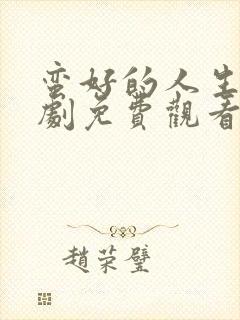 蛮好的人生
劇免費觀看
趙荣璧